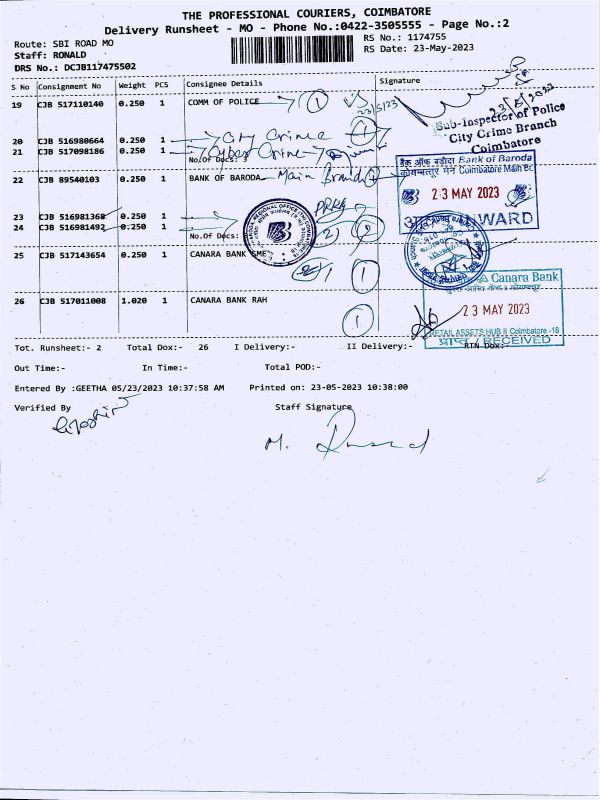 THE PROFESSIONAL COURIERS, COIMBATORE
Delivery Runsheet - MO - Phone No.:0422-3505555 - Page No.:2
Route: SBI ROAD MO
RS No.: 1174755
Staff: RONALD
RS Date: 23-May-2023
DRS No.: DCJB117475502
S No Consignment No Weight PCS Consignee Details Signature
19 CJB 517110140 0.250 1 COMM OF POLICE 1
23/5/23
23/5/2023
Sub-Inspector of Police
City Crime Branch
Coimbatore
20 CJB 516980664 0.250 1 City Crime
21 CJB 517098186 0.250 1 Cyber Crime
No.Of Docs: 3
22 CJB 89540103 0.250 1 BANK OF BARODA Main Branch
बैंक ऑफ बड़ौदा Bank of Baroda
Coimbatore Main Br.
23 MAY 2023
INWARD
23 CJB 516981368 0.250 1
24 CJB 516981492 0.250 1
No.Of Docs: 2
25 CJB 517143654 0.250 1 CANARA BANK SME
1
26 CJB 517011008 1.020 1 CANARA BANK RAH
1
Canara Bank
23 MAY 2023
RETAIL ASSETS HUB II Coimbatore -18
प्राप्त / RECEIVED
Tot. Runsheet:- 2 Total Dox:- 26 I Delivery:- II Delivery:- RTN Dox:-
Out Time:- In Time:- Total POD:-
Entered By :GEETHA 05/23/2023 10:37:58 AM Printed on: 23-05-2023 10:38:00
Verified By Staff Signature